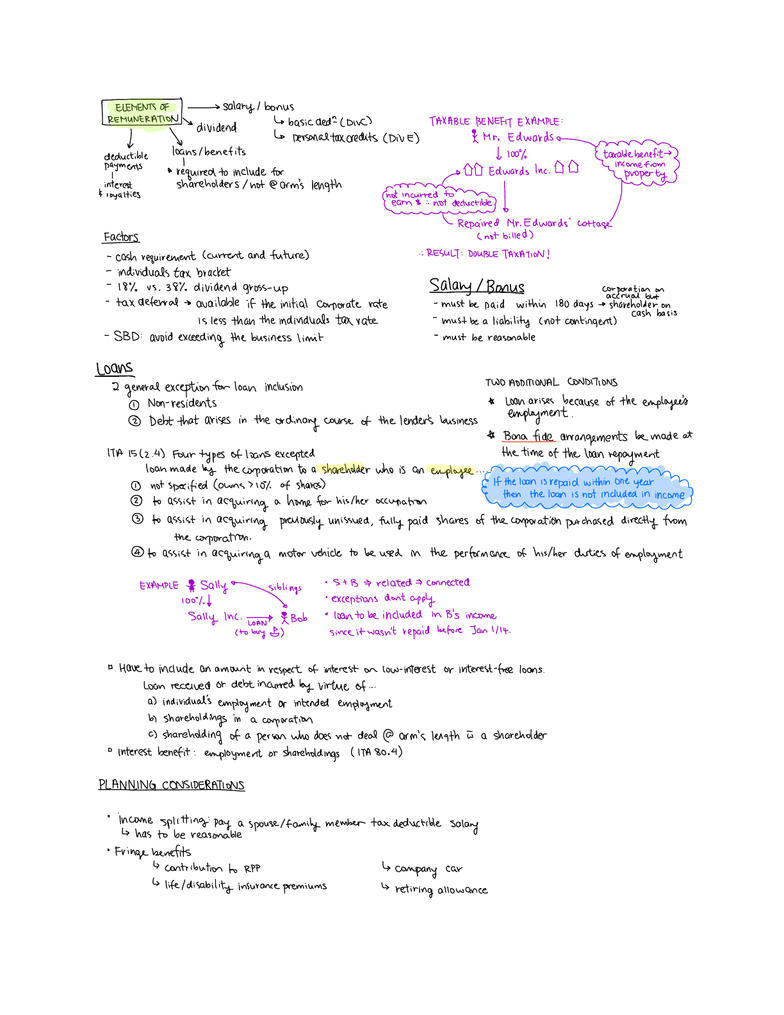 ELEMENTS OF
REMUNERATION
salary/bonus
↳ basic dedⁿ (Div C)
↳ personal tax credits (Div E)
dividend
loans/benefits
* required to include for
shareholders/not @ arm's length
deductible
payments
interest
& royalties
TAXABLE BENEFIT EXAMPLE:
Mr. Edwards
↓ 100%
Edwards Inc.
taxable benefit →
income from
property
not incurred to
earn $ ∴ not deductible
Repaired Mr. Edwards' cottage
(not billed)
∴ RESULT: DOUBLE TAXATION!
Factors
- cash requirement (current and future)
- individuals tax bracket
- 18% vs. 38% dividend gross-up
- tax deferral → available if the initial corporate rate
is less than the individuals tax rate
- SBD: avoid exceeding the business limit
Salary/Bonus
- must be paid within 180 days → corporation on
accrual but
shareholder on
cash basis
- must be a liability (not contingent)
- must be reasonable
Loans
2 general exception for loan inclusion
① Non-residents
② Debt that arises in the ordinary course of the lender's business
TWO ADDITIONAL CONDITIONS
* Loan arises because of the employee's
employment.
* Bona fide arrangements be made at
the time of the loan repayment
ITA 15(2.4) Four types of loans excepted
loan made by the corporation to a shareholder who is an employee ....
① not specified (owns >10% of shares)
② to assist in acquiring a home for his/her occupation
③ to assist in acquiring previously unissued, fully paid shares of the corporation purchased directly from
the corporation.
④ to assist in acquiring a motor vehicle to be used in the performance of his/her duties of employment
If the loan is repaid within one year
then the loan is not included in income
EXAMPLE Sally
siblings
100% ↓
Sally Inc. → Bob
LOAN
(to buy )
• S + B ⇒ related ⇒ connected
• exceptions don't apply
• loan to be included in B's income
since it wasn't repaid before Jan 1/14.
▫ Have to include an amount in respect of interest on low-interest or interest-free loans.
Loan received or debt incurred by virtue of ...
a) individual's employment or intended employment
b) shareholdings in a corporation
c) shareholding of a person who does not deal @ arm's length w̄ a shareholder
▫ Interest benefit: employment or shareholdings (ITA 80.4)
PLANNING CONSIDERATIONS
• Income splitting: pay a spouse/family member tax deductible salary
↳ has to be reasonable
• Fringe benefits
↳ contribution to RPP
↳ life/disability insurance premiums
↳ company car
↳ retiring allowance